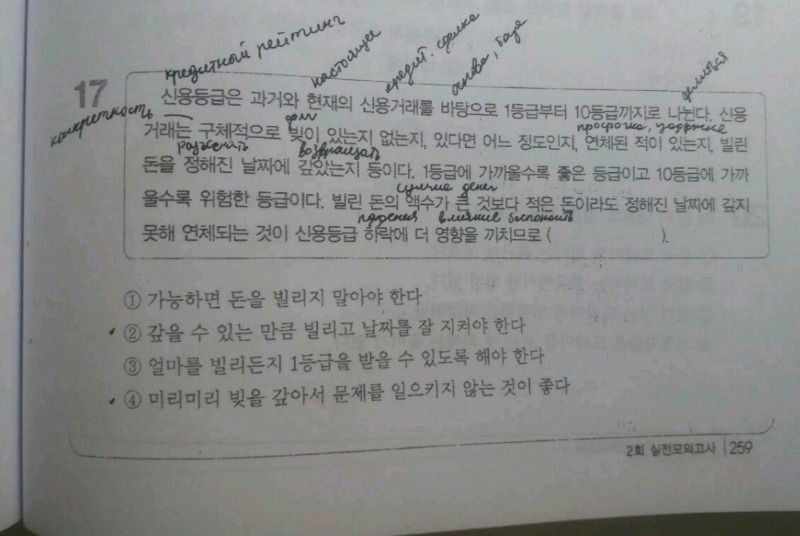 кредитный рейтинг
настоящее
кредит. сделка
основа, база
делиться
17
신용등급은 과거와 현재의 신용거래를 바탕으로 1등급부터 10등급까지로 나뉜다. 신용
конкретность
долг
просрочка, задержка
거래는 구체적으로 빚이 있는지 없는지, 있다면 어느 정도인지, 연체된 적이 있는지, 빌린
возвращать
돈을 정해진 날짜에 갚았는지 등이다. 1등급에 가까울수록 좋은 등급이고 10등급에 가까
сумма денег
울수록 위험한 등급이다. 빌린 돈의 액수가 큰 것보다 적은 돈이라도 정해진 날짜에 갚지
падения влияние беспокоить
못해 연체되는 것이 신용등급 하락에 더 영향을 끼치므로 ( ).
① 가능하면 돈을 빌리지 말아야 한다
② 갚을 수 있는 만큼 빌리고 날짜를 잘 지켜야 한다
③ 얼마를 빌리든지 1등급을 받을 수 있도록 해야 한다
④ 미리미리 빚을 갚아서 문제를 일으키지 않는 것이 좋다
2회 실전모의고사 259